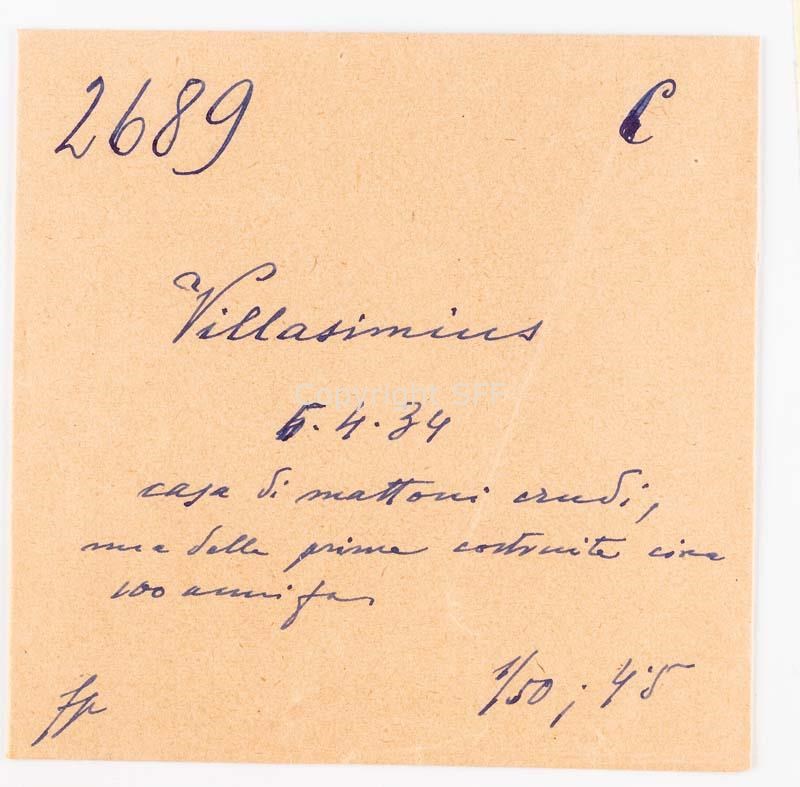 2689 C
Villasimius
Copyright SFF
5.4.34
casa di mattoni crudi,
una delle prime costruite circa
100 anni fa
fp 1/50; 4'5